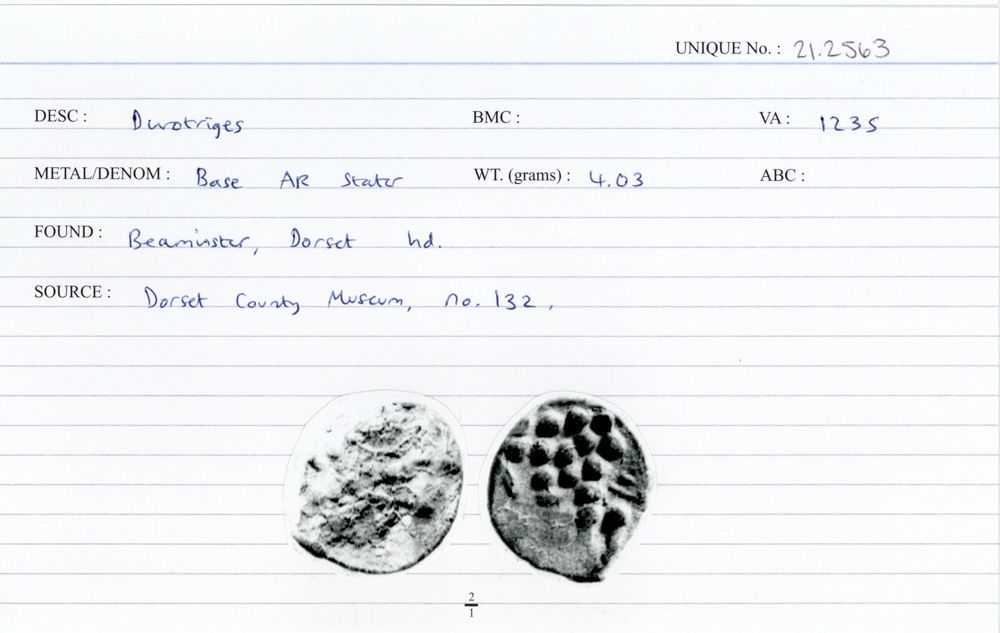 UNIQUE No. : 21.2563
DESC : Durotriges BMC : VA : 1235
METAL/DENOM : Base AR Stater WT. (grams) : 4.03 ABC :
FOUND : Beaminster, Dorset hd.
SOURCE : Dorset County Museum, no. 132.
2
1